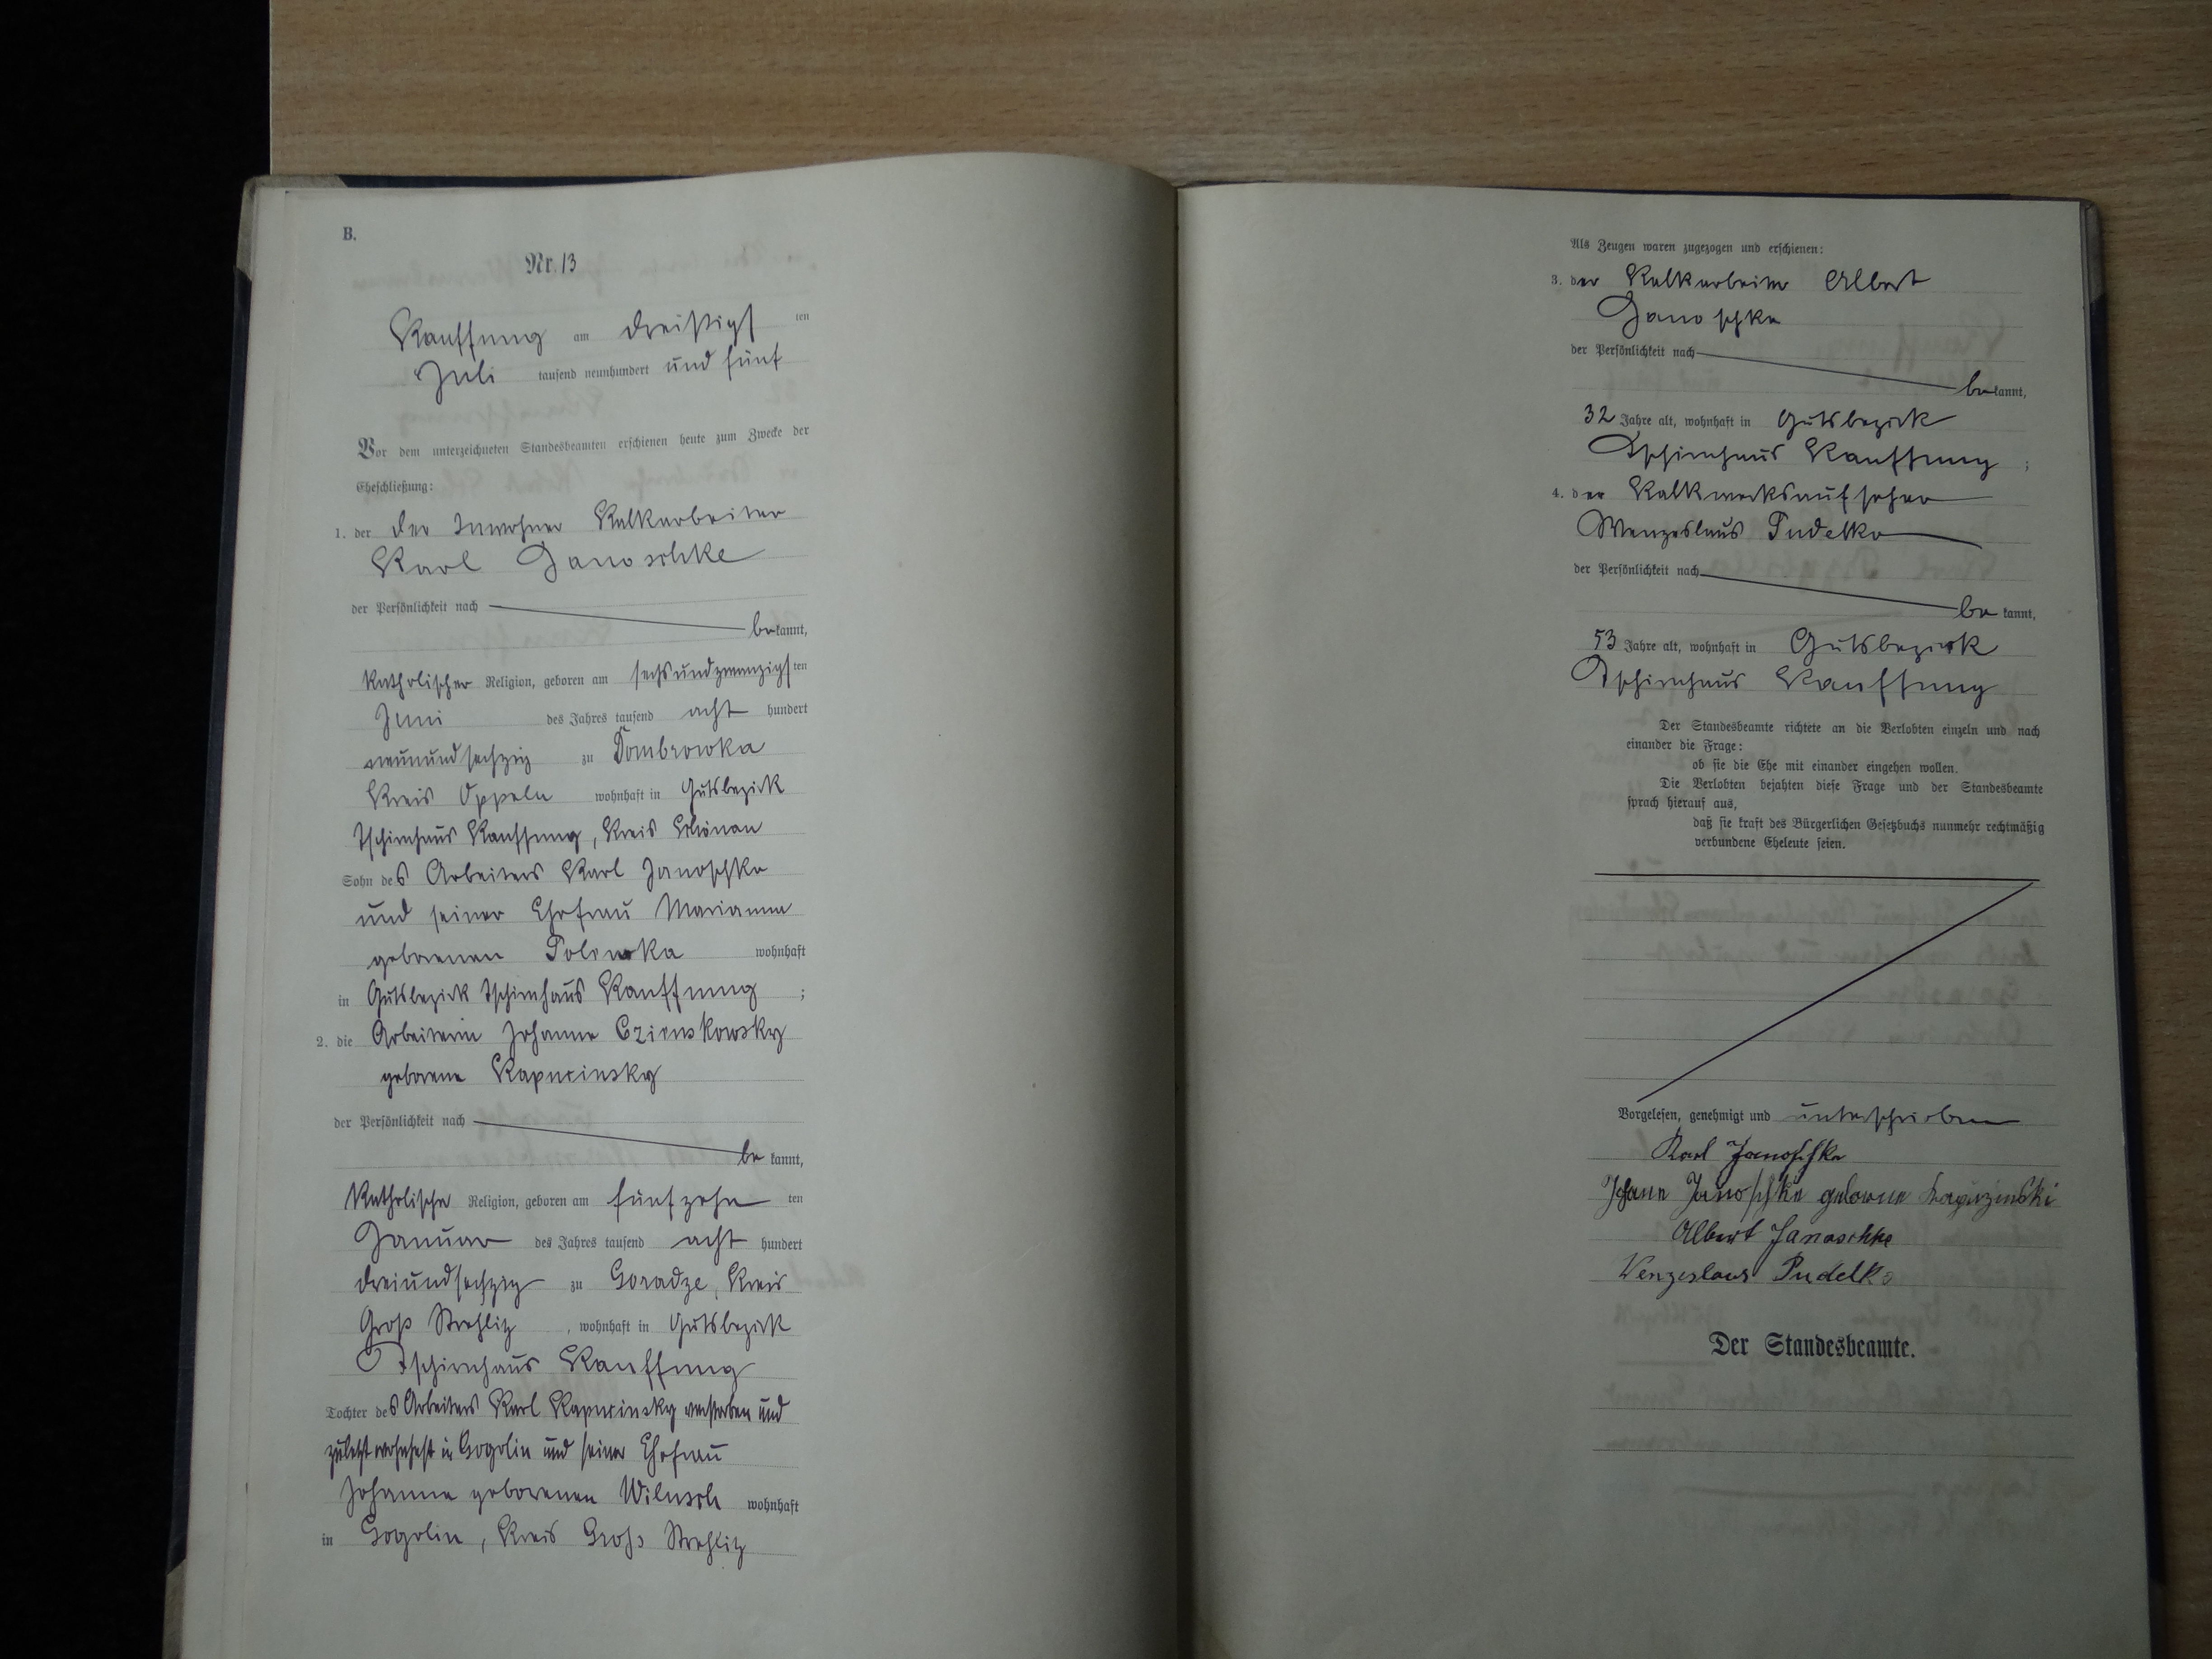 B.
Nr. 13
Kauffung am dreißigsten
Juli tausend neunhundert und fünf
Vor dem unterzeichneten Standesbeamten erschienen heute zum Zwecke der
Eheschließung:
1. der der Inwohner Kalkarbeiter
Karl Janoschke
der Persönlichkeit nach
bekannt,
katholischer Religion, geboren am sechsundzwanzigsten
Juni des Jahres tausend acht hundert
neunundsechzig zu Dombrowka
Kreis Oppeln wohnhaft in Gutsbezirk
Tschirnhaus Kauffung, Kreis Schönau
Sohn des Arbeiters Karl Janoschke
und seiner Ehefrau Marianna
geborenen Polewka wohnhaft
in Gutsbezirk Tschirnhaus Kauffung ;
2. die Arbeiterin Johanne Czienskowsky
geborene Kapucinsky
der Persönlichkeit nach
be kannt,
katholische Religion, geboren am fünfzehn ten
Januar des Jahres tausend acht hundert
dreiundsechzig zu Goradze, Kreis
Groß Strehlitz , wohnhaft in Gutsbezirk
Tschirnhaus Kauffung
Tochter des Arbeiters Karl Kapucinsky verstorben und
zuletzt wohnhaft in Gogolin und seiner Ehefrau
Johanna geborenen Wilusch wohnhaft
in Gogolin, Kreis Groß Strehlitz
Als Zeugen waren zugezogen und erschienen:
3. der Kalkarbeiter Albert
Janoschke
der Persönlichkeit nach
bekannt,
32 Jahre alt, wohnhaft in Gutsbezirk
Tschirnhaus Kauffung ;
4. der Kalkwerksaufseher
Wenzeslaus Pudelko
der Persönlichkeit nach
be kannt,
53 Jahre alt, wohnhaft in Gutsbezirk
Tschirnhaus Kauffung
Der Standesbeamte richtete an die Verlobten einzeln und nach
einander die Frage:
ob sie die Ehe mit einander eingehen wollen.
Die Verlobten bejahten diese Frage und der Standesbeamte
sprach hierauf aus,
daß sie kraft des Bürgerlichen Gesetzbuchs nunmehr rechtmäßig
verbundene Eheleute seien.
Vorgelesen, genehmigt und unterschrieben
Karl Janoschke
Johane Janoschke geborene Kapuzinski
Albert Janoschke
Wenzeslaus Pudelko
Der Standesbeamte.